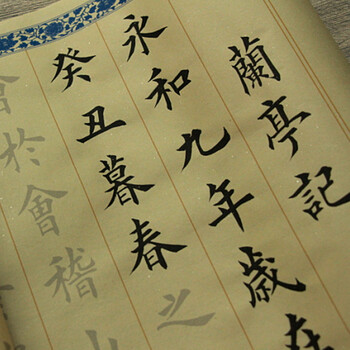 蘭亭記
永和九年歲在
癸丑暮春之
會於會稽山